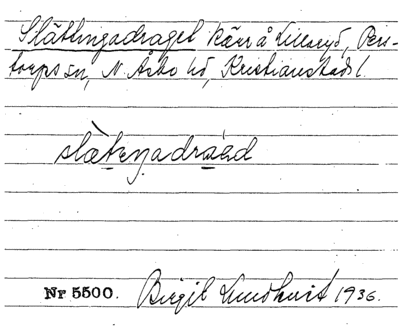 Slättingadraget kärr å Lillaryd, Pers-
torps sn, N. Åsbo hd, Kristianstads l.
Nr 5500. Birgit Lundkvist 1936.